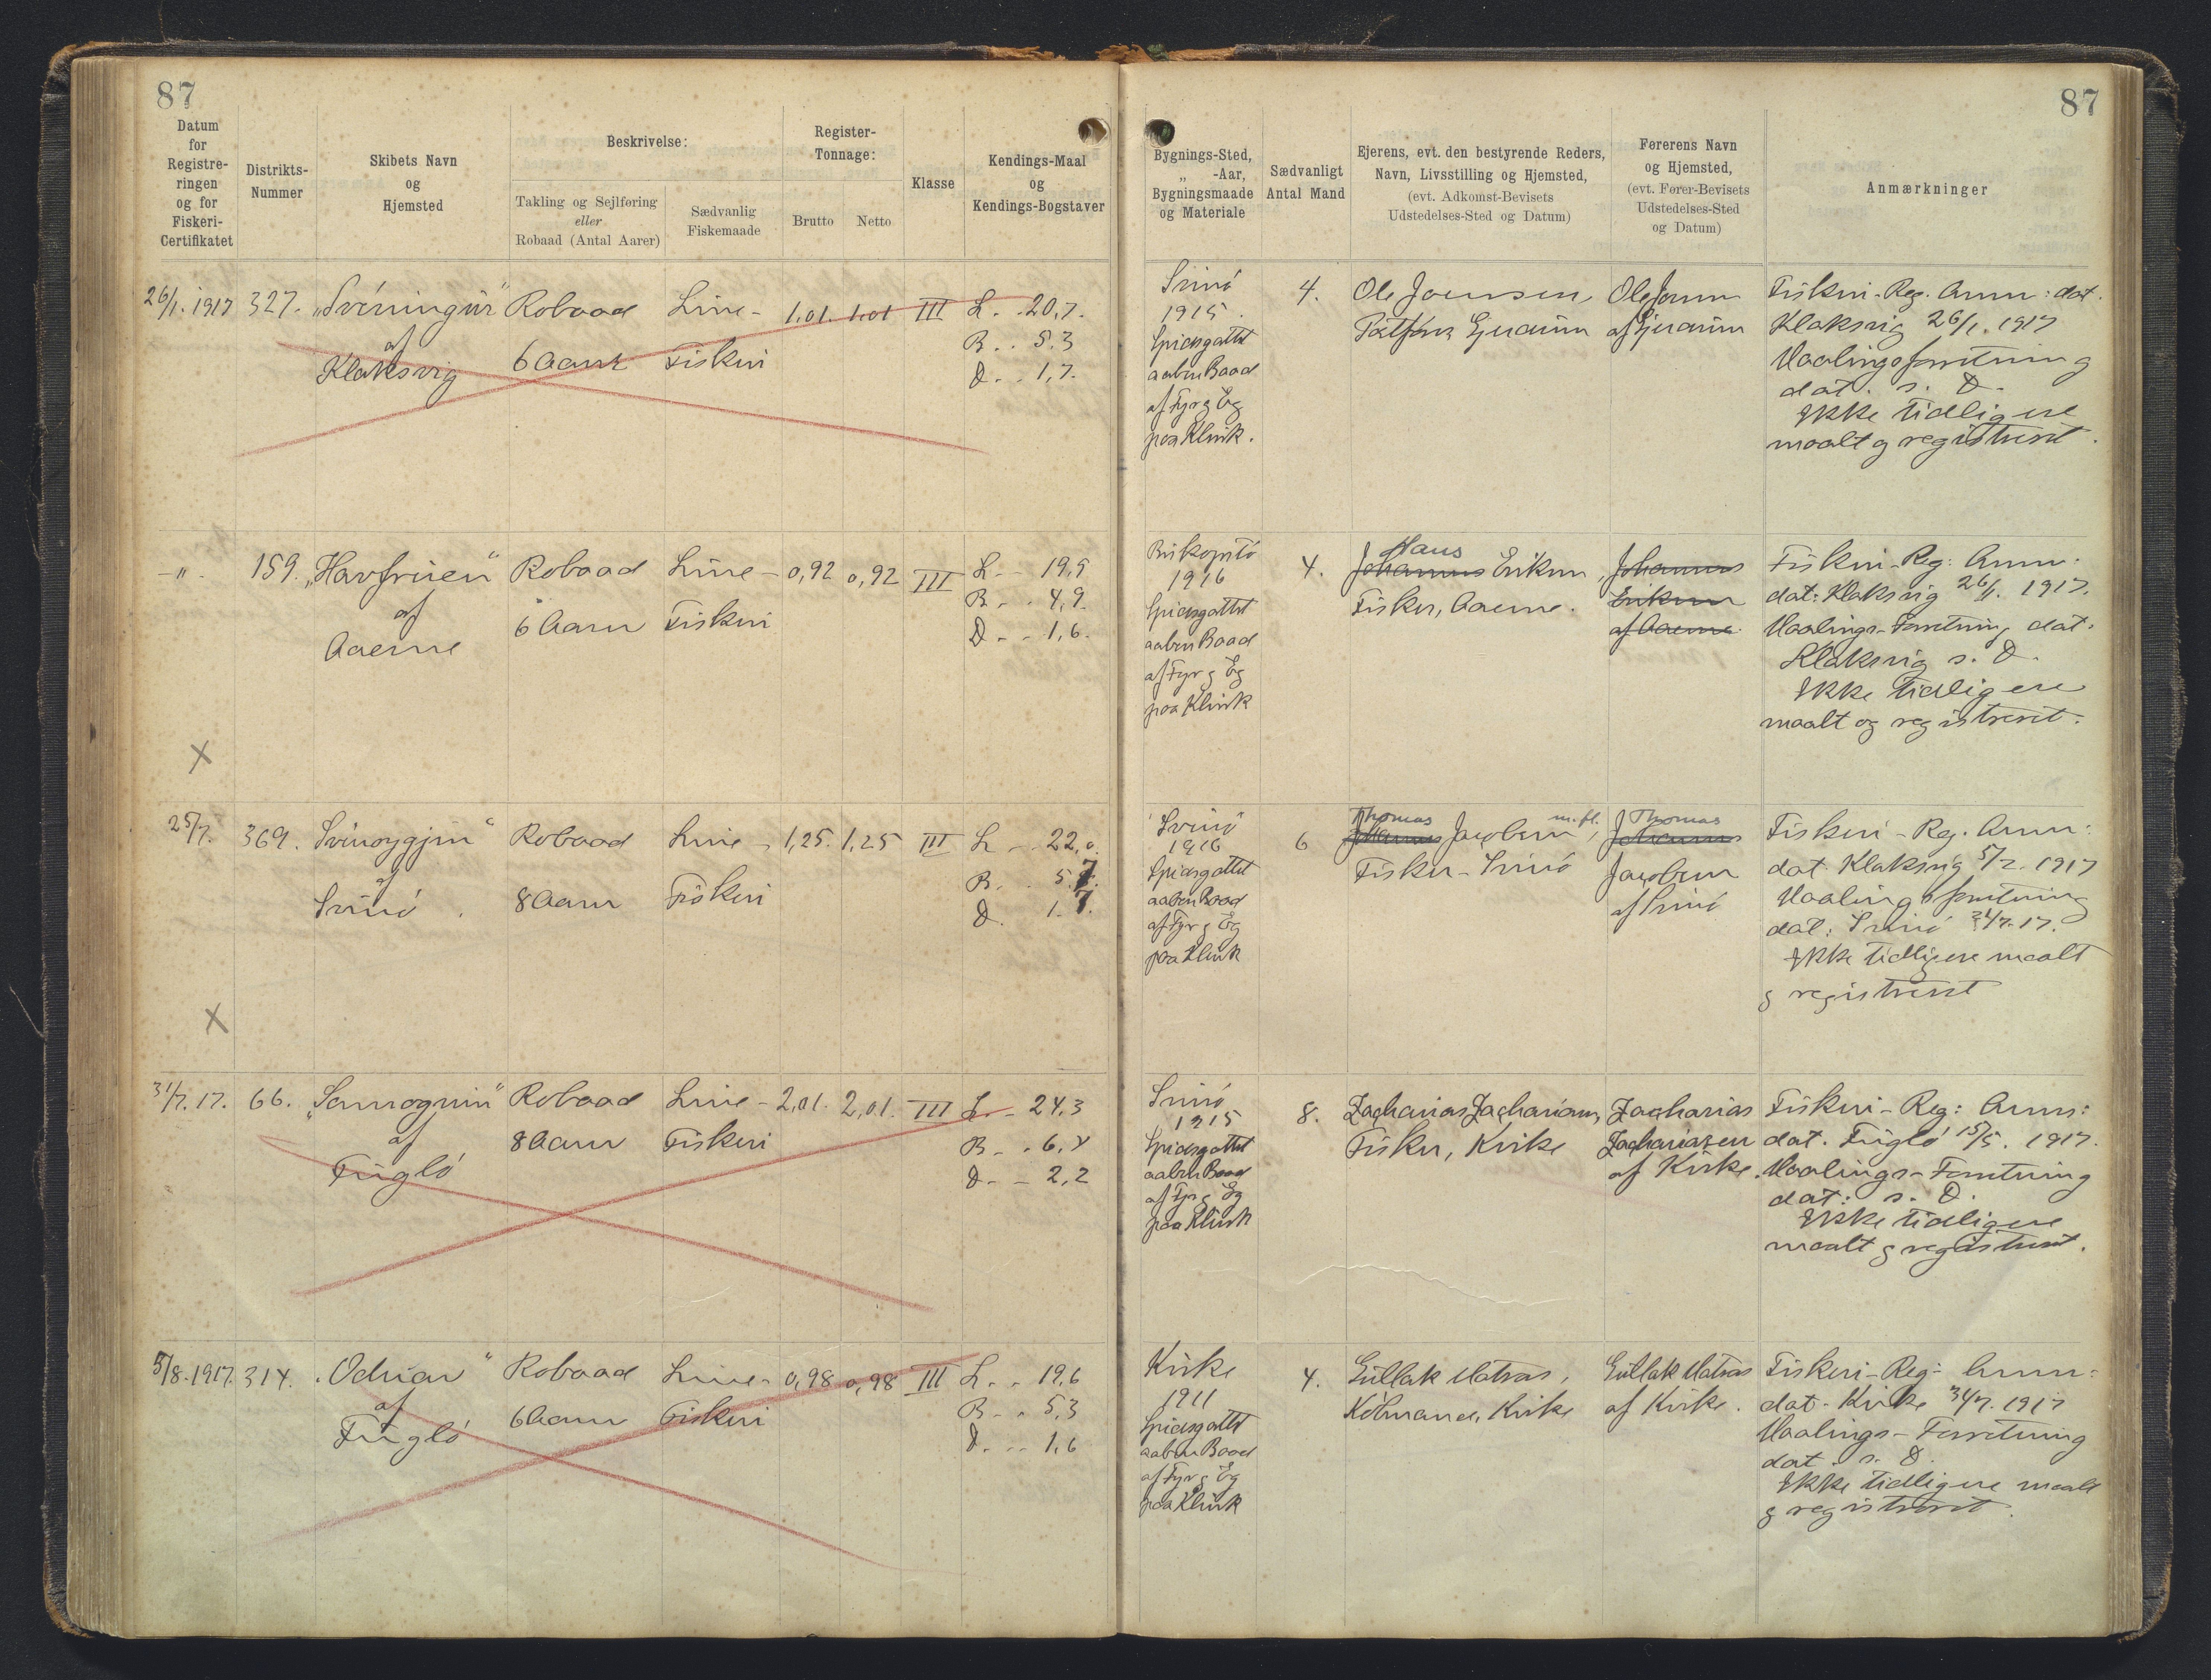 87
87
Datum
for
Registre-
ringen
og for
Fiskeri-
Certifikatet
Distrikts-
Nummer
Skibets Navn
og
Hjemsted
Beskrivelse:
Takling og Sejlføring
eller
Robaad (Antal Aarer)
Sædvanlig
Fiskemaade
Register-
Tonnage:
Brutto
Netto
Klasse
Kendings-Maal
og
Kendings-Bogstaver
Bygnings-Sted,
„ -Aar,
Bygningsmaade
og Materiale
Sædvanligt
Antal Mand
Ejerens, evt. den bestyrende Reders,
Navn, Livsstilling og Hjemsted,
(evt. Adkomst-Bevisets
Udstedelses-Sted og Datum)
Førerens Navn
og Hjemsted,
(evt. Fører-Bevisets
Udstedelses-Sted
og Datum)
Anmærkninger
26/1. 1917
327.
af
Klaksvig
Robaad
6 Aarer
Line-
Fiskeri
1,01.
1,01
III
L. . 20,7.
B. . 5.3
D. . 1,7.
Svinö
1915.
Spidsgattet
aaben Baad
af Fyr og Eg
paa Klink.
4.
Ole Joensen,
Gjeraum
Ole Joensen
af Gjeraum
Fiskeri-Reg. Anm: dat.
Klaksvig 26/1. 1917
Maalingsforretning
dat. s. D.
Ikke tidligere
maalt og registreret.
- " -
159.
„Havfruen"
af
Aaerne
Robaad
6 Aarer
Line-
Fiskeri
0,92
0,92
III
L. - 19,9
B. - . 4,9.
D. - - 1,6.
1916
Spidsgattet
aaben Baad
af Fyr og Eg
paa Klink
4.
Hans
Johannes Eriksen,
Fisker, Aaerne.
Johannes
Eriksen
af Aaerne
Fiskeri-Reg: Anm:
dat: Klaksvig 26/1. 1917.
Maalings-Forretning dat.
Klaksvig s. D.
Ikke tidligere
maalt og registreret.
X
25/7.
369.
af
Svinö.
Robaad
8 Aarer
Line-
Fiskeri
1,25.
1,25
III
L - . 22,0.
B. . 5.7.
D. 1.7.
Svinö
1916
Spidsgattet
aaben Baad
af Fyr og Eg
paa Klink
6
Thomas m.fl.
Johannes Jacobsen,
Fisker - Svinö
Thomas
Johannes
Jacobsen
af Svinö
Fiskeri-Reg. Anm:
dat. Klaksvig 5/2. 1917
Maalingsforretning
dat: Svinö 24/7. 17.
Ikke tidligere maalt
og registreret
X
31/7. 17.
66.
af
Fuglö
Robaad
8 Aarer
Line-
Fiskeri
2,01.
2,01.
III
L. - 24,3
B. - . 6,4
D. - - 2,2
Svinö
1915
Spidsgattet
aaben Baad
af Fyr og Eg
paa Klink
8.
Zacharias Zachariasen,
Fisker, Kirke
Zacharias
Zachariasen
af Kirke.
Fiskeri-Reg: Anm:
dat. Fuglö 15/5. 1917.
Maalings-Forretning
dat: s. D.
Ikke tidligere
maalt og registreret.
5/8. 1917.
314.
af
Fuglö
Robaad
6 Aarer
Line-
Fiskeri
0,98
0,98
III
L. . . 19,6
B. - . 5,3
D. . .. 1,6
Kirke
1911
Spidsgattet
aaben Baad
af Fyr og Eg
paa Klink
4.
Gullak Matras,
Købmand, Kirke
Gullak Matras
af Kirke.
Fiskeri-Reg: Anm:
dat. Kirke 31/7. 1917
Maalings-Forretning
dat. s. D.
Ikke tidligere maalt
og registreret.